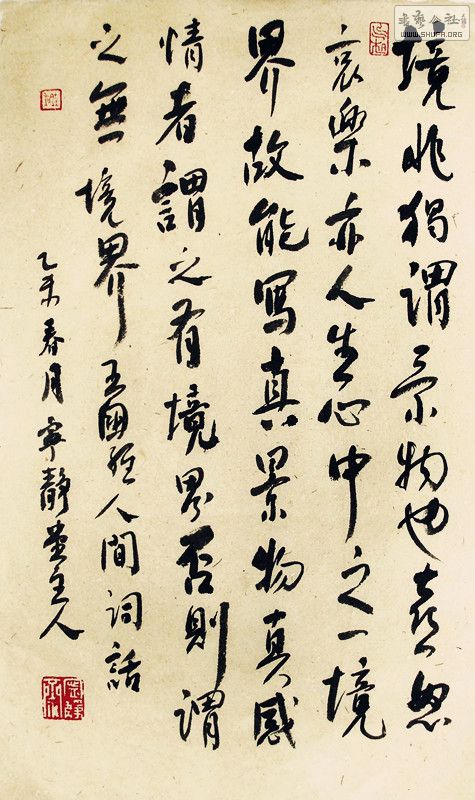 境非獨謂景物也喜怒
哀樂亦人生心中之一境
界故能寫真景物真感
情者謂之有境界否則謂
之無境界 王國維人間詞話
乙未春月寧靜堂主人
書藝公社
WWW.SHUFA.ORG